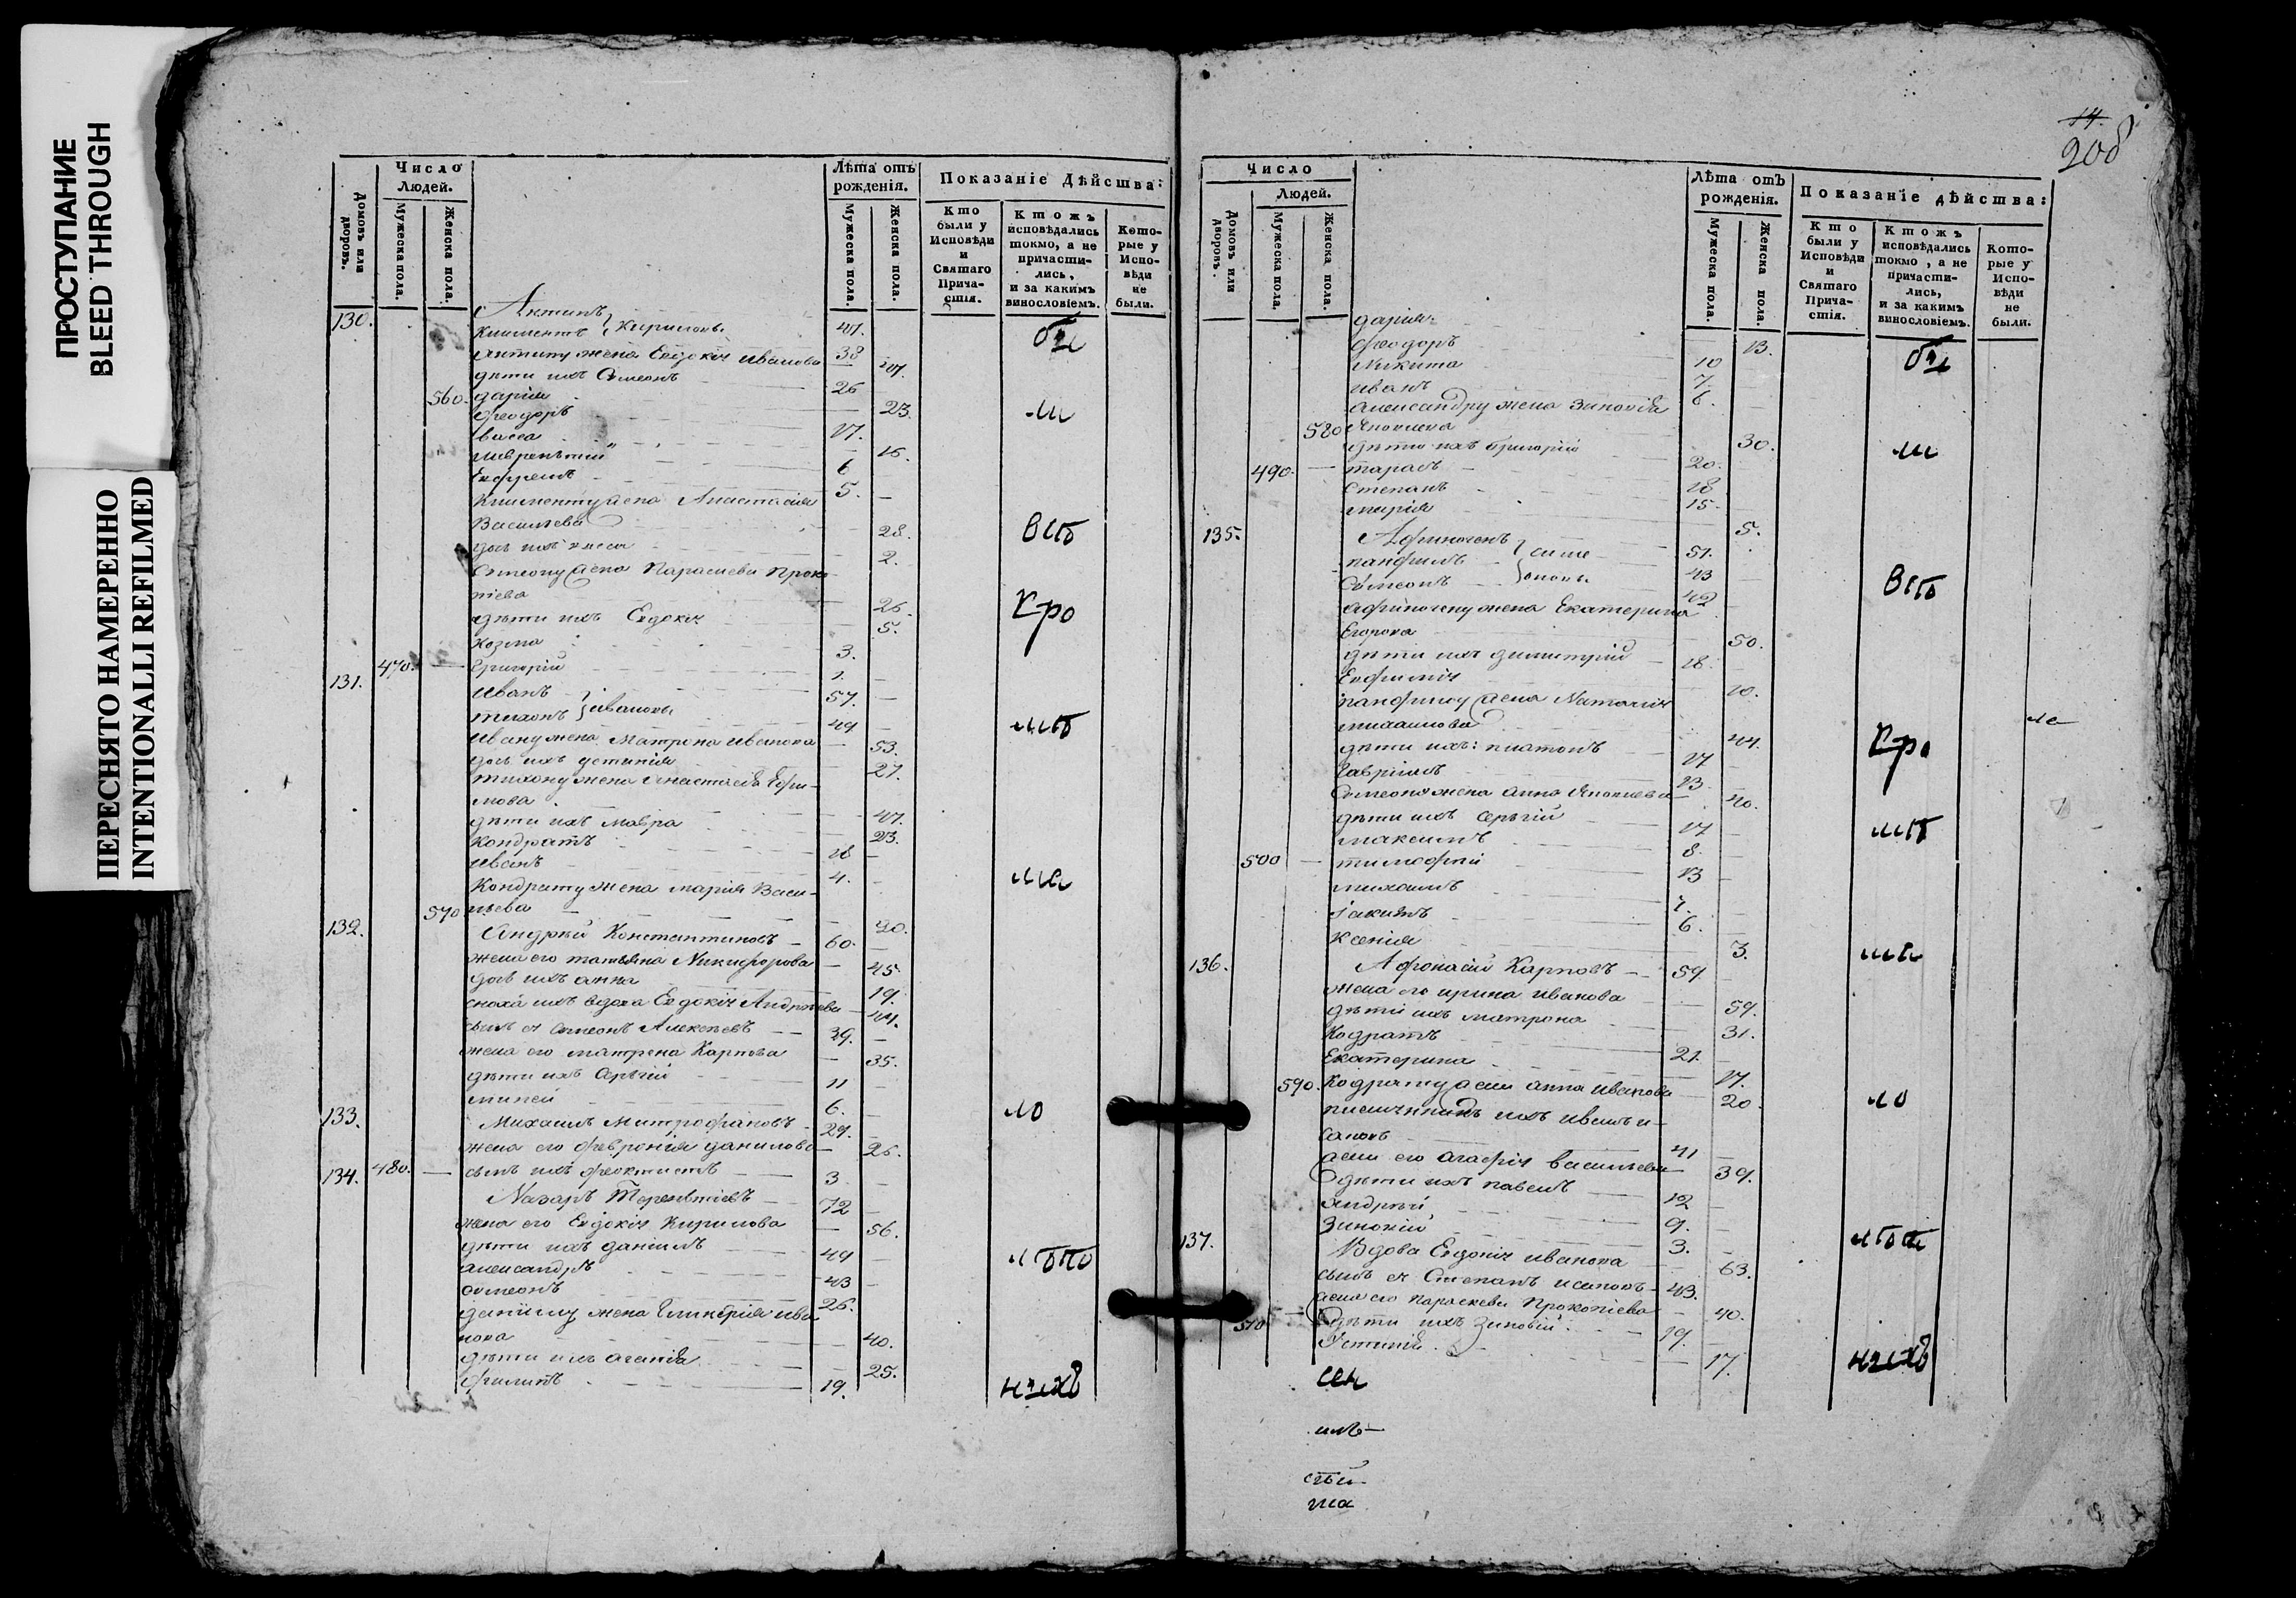 ПРОСТУПАНИЕ
BLEED THROUGH
ПЕРЕСНЯТО НАМЕРЕННО
INTENTIONALLI REFILMED
Число
Людей.
Домовъ или дворовъ.
Мужеска пола.
Женска пола.
Лѣта отъ рожденія.
Мужеска пола.
Женска пола.
Показаніе Дѣйства:
Кто были у Исповѣди и Святаго Прича-стія.
Ктожъ исповѣдались токмо, а не причасти-лись, и за какимъ винословіемъ.
Кото-рые у Испо-вѣди не были.
130.
Климентъ Кириловы 47.
Антипу жена Евдокія Иванова 38
дѣти ихъ Симеонъ 26
560. дарія 23.
Феодоръ 17.
васса
лаврентій 6
Ефремъ 5.
Клименту жена Анастасія
Васильева 28.
2.
Симеону жена Параскева Проко
піева 26.
дѣти ихъ Евдокія 5.
Козма 3.
470. Григорій 1.
131. Иванъ Ивановы 57.
тихонъ 49
Ивану жена Матрона Иванова 53.
дочь ихъ устинія 21.
тихону жена Анастасія Ефи-
мова 47.
дѣти ихъ Мавра 23.
Кондратъ 18
Иванъ 4.
Кондрату жена марія Васи-
570 льева 20.
132. Андрей Константиновъ 60.
жена его татьяна Никифорова 45.
дочь ихъ анна 19.
сноха ихъ вдова Евдокія Андреева
сынъ ея Симеонъ Алексѣевъ 39.
жена его матрена Карпова 35.
дѣти ихъ Сергій 11
6.
133. Михаилъ Митрофановъ 29.
жена его февронія данилова 26.
134. 480. сынъ ихъ феоктистъ 3
Назаръ Терентіевъ 72
жена его Евдокія Кирилова 56.
дѣти ихъ даніилъ 49
александръ 43
симеонъ 26.
даніилу жена Гликерія ива
нова 40.
дѣти ихъ агапія 25.
Филипъ 19.
14.
208
Число
Людей.
Домовъ или дворовъ.
Мужеска пола.
Женска пола.
Лѣта отъ рожденія.
Мужеска пола.
Женска пола.
Показаніе дѣйства:
Кто были у Исповѣди и Святаго Прича-стія.
Ктожъ исповѣдались токмо, а не причасти-лись, и за какимъ винословіемъ.
Кото-рые у Испо-вѣди не были.
дарія 13.
Феодоръ 10
Никита 7.
иванъ 6.
александру жена Зиновія
580 Яковлева 30.
дѣти ихъ Григорій 20.
490. тарасъ 18
Степанъ 15.
марія 5.
135. Афиногенъ 51.
панфилъ 43
Симеонъ 42
Афиногену жена Екатерина
Егорова 50.
дѣти ихъ димитрій 18.
Евфимія 10.
панфилу жена Наталія
михаилова 44.
дѣти ихъ: платонъ 17
Гавріилъ 13.
Симеону жена анна Яковлева 40.
дѣти ихъ Сергій 17
максимъ 8.
500 тимофей 13
михаилъ 7.
Іакимъ 6.
Ксенія 3.
136. Афонасій Карповъ 59
жена его ирина иванова 59.
дѣти ихъ матрона 31.
Кодратъ 21.
Екатерина 17.
590. Кодрату жена анна иванова 20.
племянникъ ихъ иванъ и-
саковъ 41
жена его агафія васильева 39.
дѣти ихъ павелъ 12
Андрей 9.
Зиновій 3.
137. Вдова Евдокія иванова 63.
сынъ ея Степанъ исаковъ 43.
жена его Параскева Прокопіева 40.
510 дѣти ихъ Зиновій 19.
Устинія 17.